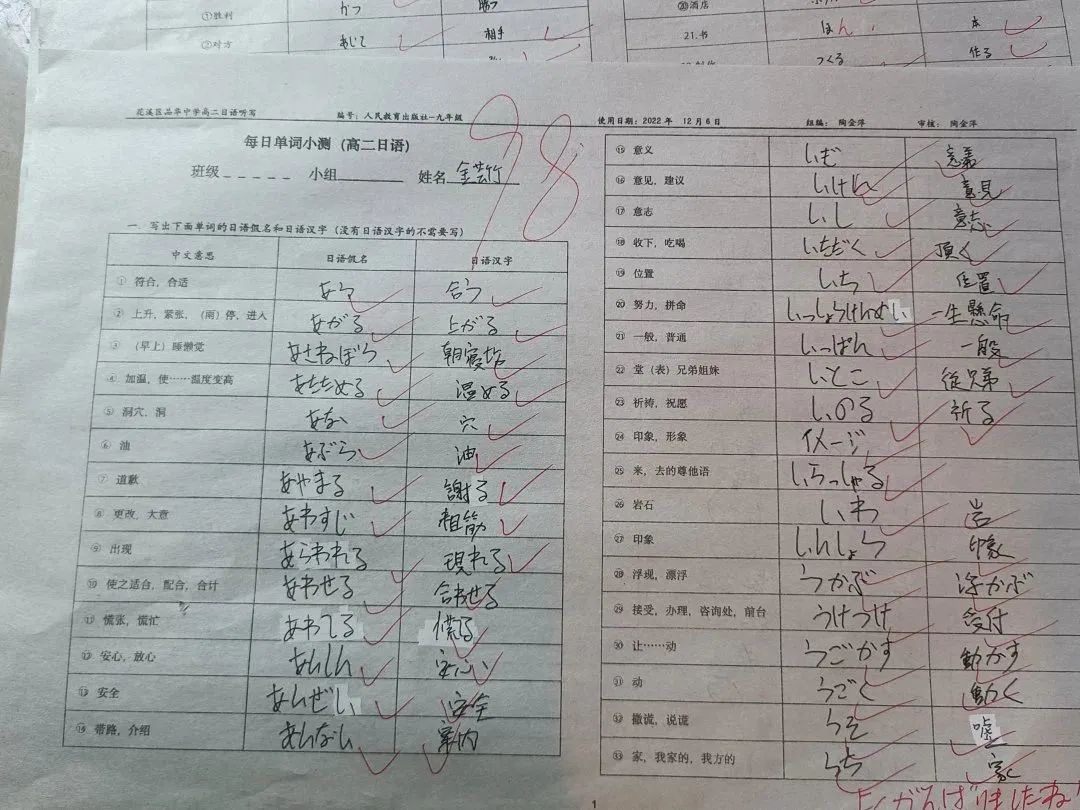 ①胜利 かつ 勝つ
②对方 あいて 相手
⑳酒店
21.书 ほん 本
つくる 作る
花溪区品华中学高二日语听写 编号:人民教育出版社-九年级 使用日期:2022 年 12 月 6 日 组编: 陶金萍 审核: 陶金萍
98
每日单词小测(高二日语)
班级_ _ _ _ _ 小组________ 姓名 金芸竹
一. 写出下面单词的日语假名和日语汉字(没有日语汉字的不需要写)
中文意思 日语假名 日语汉字
① 符合,合适 あう 合う
② 上升,紧张,(雨)停,进入 あがる 上がる
③ (早上)睡懒觉 あさねぼう 朝寝坊
④ 加温,使……温度变高 あたためる 温める
⑤ 洞穴,洞 あな 穴
⑥ 油 あぶら 油
⑦ 道歉 あやまる 謝る
⑧ 更改,大意 あわすじ 粗筋
⑨ 出现 あらわれる 現れる
⑩ 使之适合,配合,合计 あわせる 合わせる
⑪ 慌张,慌忙 あわてる 慌る
⑫ 安心,放心 あんしん 安心
⑬ 安全 あんぜい 安全
⑭ 带路,介绍 あんない 案内
⑮ 意义 いぎ 意義
⑯ 意见,建议 いけん 意見
⑰ 意志 いし 意志
⑱ 收下,吃喝 いただく 頂く
⑲ 位置 いち 位置
⑳ 努力,拼命 いっしょうけんめい 一生懸命
㉑ 一般,普通 いっぱん 一般
㉒ 堂(表)兄弟姐妹 いとこ 従兄弟
㉓ 祈祷,祝愿 いのる 祈る
㉔ 印象,形象 イメージ
㉕ 来,去的尊他语 いらっしゃる
㉖ 岩石 いわ 岩
㉗ 印象 いんしょう 印象
㉘ 浮现,漂浮 うかぶ 浮かぶ
㉙ 接受,办理,咨询处,前台 うけつけ 受付
㉚ 让……动 うごかす 動かす
㉛ 动 うごく 動く
㉜ 撒谎,说谎 うそ 嘘
㉝ 家,我家的,我方的 うち 家
よくがんばりましたね
1